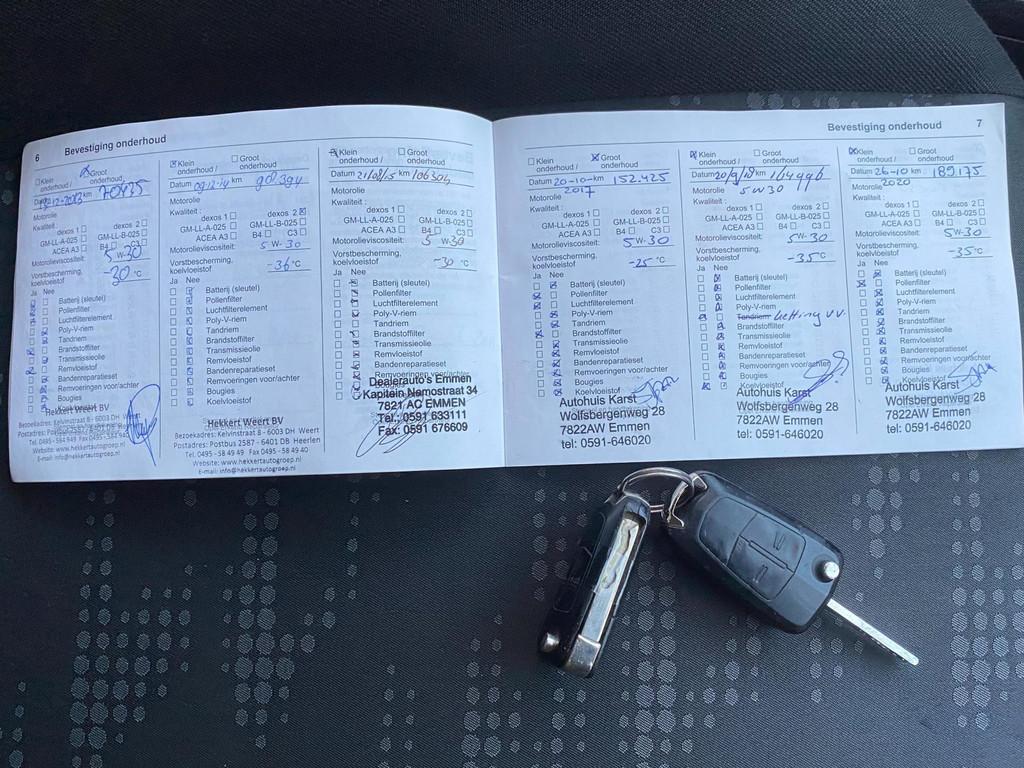 6 Bevestiging onderhoud
Klein onderhoud / Groot onderhoud
Datum 12-2013 km 70475
Motorolie
Kwaliteit :
dexos 1 dexos 2
GM-LL-A-025 GM-LL-B-025
ACEA A3 B4 C3
Motorolieviscositeit: 5 W-30
Vorstbescherming, koelvloeistof -30 °C
Ja Nee
Batterij (sleutel)
Pollenfilter
Luchtfilterelement
Poly-V-riem
Tandriem
Brandstoffilter
Transmissieolie
Remvloeistof
Bandenreparatieset
Remvoeringen voor/achter
Bougies
Koelvloeistof
Hekkert Weert BV
Bezoekadres: Kelvinstraat 8 - 6003 DH Weert
Postadres: Postbus 2587 - 6401 DB Heerlen
Tel. 0495 - 58 49 49 Fax 0495 - 58 49 40
Website: www.hekkertautogroep.nl
E-mail: info@hekkertautogroep.nl
Klein onderhoud / Groot onderhoud
Datum 09-12-14 km 90.394
Motorolie
Kwaliteit :
dexos 1 dexos 2
GM-LL-A-025 GM-LL-B-025
ACEA A3 B4 C3
Motorolieviscositeit: 5 W-30
Vorstbescherming, koelvloeistof -36 °C
Ja Nee
Batterij (sleutel)
Pollenfilter
Luchtfilterelement
Poly-V-riem
Tandriem
Brandstoffilter
Transmissieolie
Remvloeistof
Bandenreparatieset
Remvoeringen voor/achter
Bougies
Koelvloeistof
Hekkert Weert BV
Bezoekadres: Kelvinstraat 8 - 6003 DH Weert
Postadres: Postbus 2587 - 6401 DB Heerlen
Tel. 0495 - 58 49 49 Fax 0495 - 58 49 40
Website: www.hekkertautogroep.nl
E-mail: info@hekkertautogroep.nl
Klein onderhoud / Groot onderhoud
Datum 21/08/15 km 106304
Motorolie
Kwaliteit :
dexos 1 dexos 2
GM-LL-A-025 GM-LL-B-025
ACEA A3 B4 C3
Motorolieviscositeit: 5 W-30
Vorstbescherming, koelvloeistof -30 °C
Ja Nee
Batterij (sleutel)
Pollenfilter
Luchtfilterelement
Poly-V-riem
Tandriem
Brandstoffilter
Transmissieolie
Remvloeistof
Bandenreparatieset
Remvoeringen voor/achter
Bougies
Dealerauto's Emmen
Kapitein Nemostraat 34
7821 AC EMMEN
Tel.: 0591 633111
Fax: 0591 676609
Bevestiging onderhoud 7
Klein onderhoud / Groot onderhoud
Datum 20-10- km 152.425
2017
Motorolie
Kwaliteit :
dexos 1 dexos 2
GM-LL-A-025 GM-LL-B-025
ACEA A3 B4 C3
Motorolieviscositeit: 5W-30
Vorstbescherming, koelvloeistof -25 °C
Ja Nee
Batterij (sleutel)
Pollenfilter
Luchtfilterelement
Poly-V-riem
Tandriem
Brandstoffilter
Transmissieolie
Remvloeistof
Bandenreparatieset
Remvoeringen voor/achter
Bougies
Koelvloeistof
Autohuis Karst
Wolfsbergenweg 28
7822AW Emmen
tel: 0591-646020
Klein onderhoud / Groot onderhoud
Datum 20/9/18 km 164996
Motorolie 5W30
Kwaliteit :
dexos 1 dexos 2
GM-LL-A-025 GM-LL-B-025
ACEA A3 B4 C3
Motorolieviscositeit: 5W-30
Vorstbescherming, koelvloeistof -35 °C
Ja Nee
Batterij (sleutel)
Pollenfilter
Luchtfilterelement
Poly-V-riem
Tandriem ketting v.v.
Brandstoffilter
Transmissieolie
Remvloeistof
Bandenreparatieset
Remvoeringen voor/achter
Bougies
Koelvloeistof
Autohuis Karst
Wolfsbergenweg 28
7822AW Emmen
tel: 0591-646020
Klein onderhoud / Groot onderhoud
Datum 26-10 km 189.175
2020
Motorolie
Kwaliteit :
dexos 1 dexos 2
GM-LL-A-025 GM-LL-B-025
ACEA A3 B4 C3
Motorolieviscositeit: 5W-30
Vorstbescherming, koelvloeistof -35 °C
Ja Nee
Batterij (sleutel)
Pollenfilter
Luchtfilterelement
Poly-V-riem
Tandriem
Brandstoffilter
Transmissieolie
Remvloeistof
Bandenreparatieset
Remvoeringen voor/achter
Bougies
Koelvloeistof
Autohuis Karst
Wolfsbergenweg 28
7822AW Emmen
tel: 0591-646020